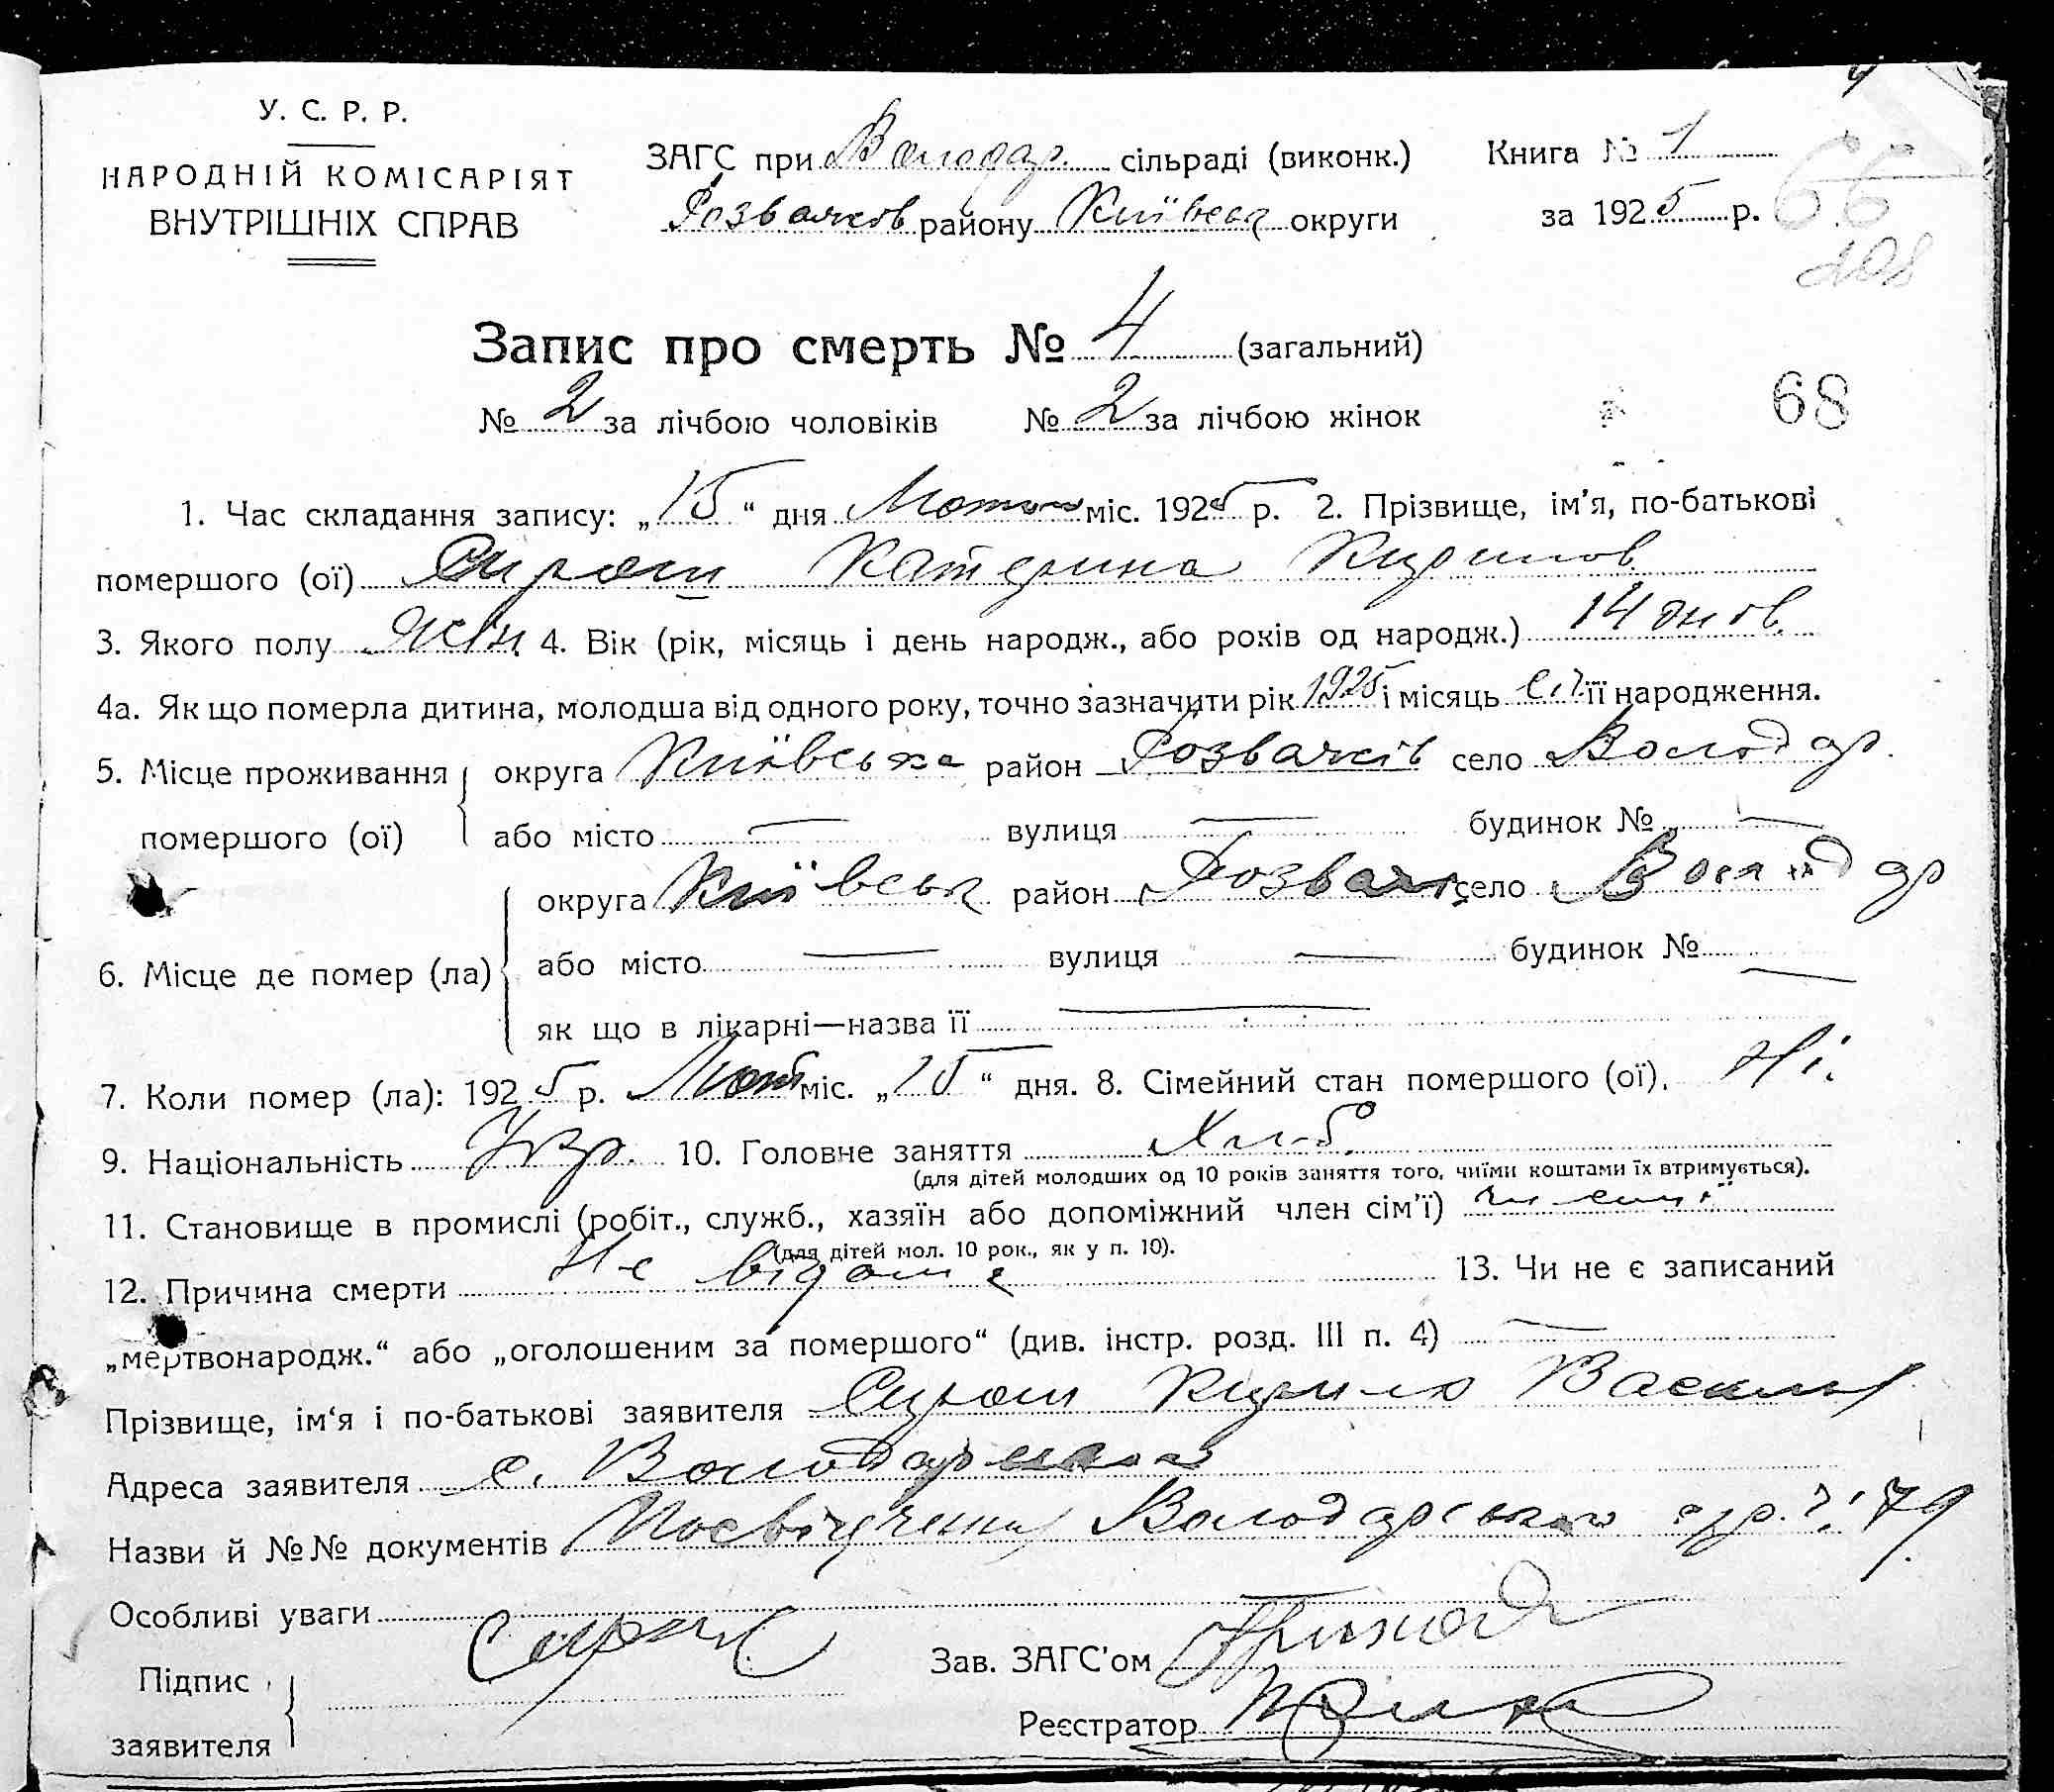 У. С. Р. Р.
НАРОДНІЙ КОМІСАРІЯТ
ВНУТРІШНІХ СПРАВ
ЗАГС при Володар. сільраді (виконк.)
Розважів району Київськ округи
Книга № 1
за 1925 р.
66
108
Запис про смерть № 4 (загальний)
№ 2 за лічбою чоловіків № 2 за лічбою жінок
68
1. Час складання запису: „15“ дня Лютого міс. 1925 р. 2. Прізвище, ім’я, по-батькові
помершого (ої) Сирош Катерина Кирилов.
3. Якого полу Жін. 4. Вік (рік, місяць і день народж., або років од народж.) 14 днів.
4а. Як що померла дитина, молодша від одного року, точно зазначити рік 1925 і місяць Січ. її народження.
5. Місце проживання округа Київська район Розважів село Володар.
помершого (ої) або місто — вулиця — будинок № —
округа Київськ район Розваж. село Володар
6. Місце де помер (ла) або місто — вулиця — будинок № —
як що в лікарні—назва її —
7. Коли помер (ла): 1925 р. Лют міс. „15“ дня. 8. Сімейний стан помершого (ої). Ні.
9. Національність Укр. 10. Головне заняття Хліб.
(для дітей молодших од 10 років заняття того, чиїми коштами їх втримується).
11. Становище в промислі (робіт., служб., хазяїн або допоміжний член сім’ї) чл. сим’ї
(для дітей мол. 10 рок., як у п. 10).
12. Причина смерти Не відоме 13. Чи не є записаний
„мертвонародж.“ або „оголошеним за помершого“ (див. інстр. розд. III п. 4) —
Прізвище, ім‘я і по-батькові заявителя Сирош Кирило Василь
Адреса заявителя с. Володарка
Назви й №№ документів Посвідчення Володарського 79
Особливі уваги
Підпис заявителя
Зав. ЗАГС’ом
Реєстратор